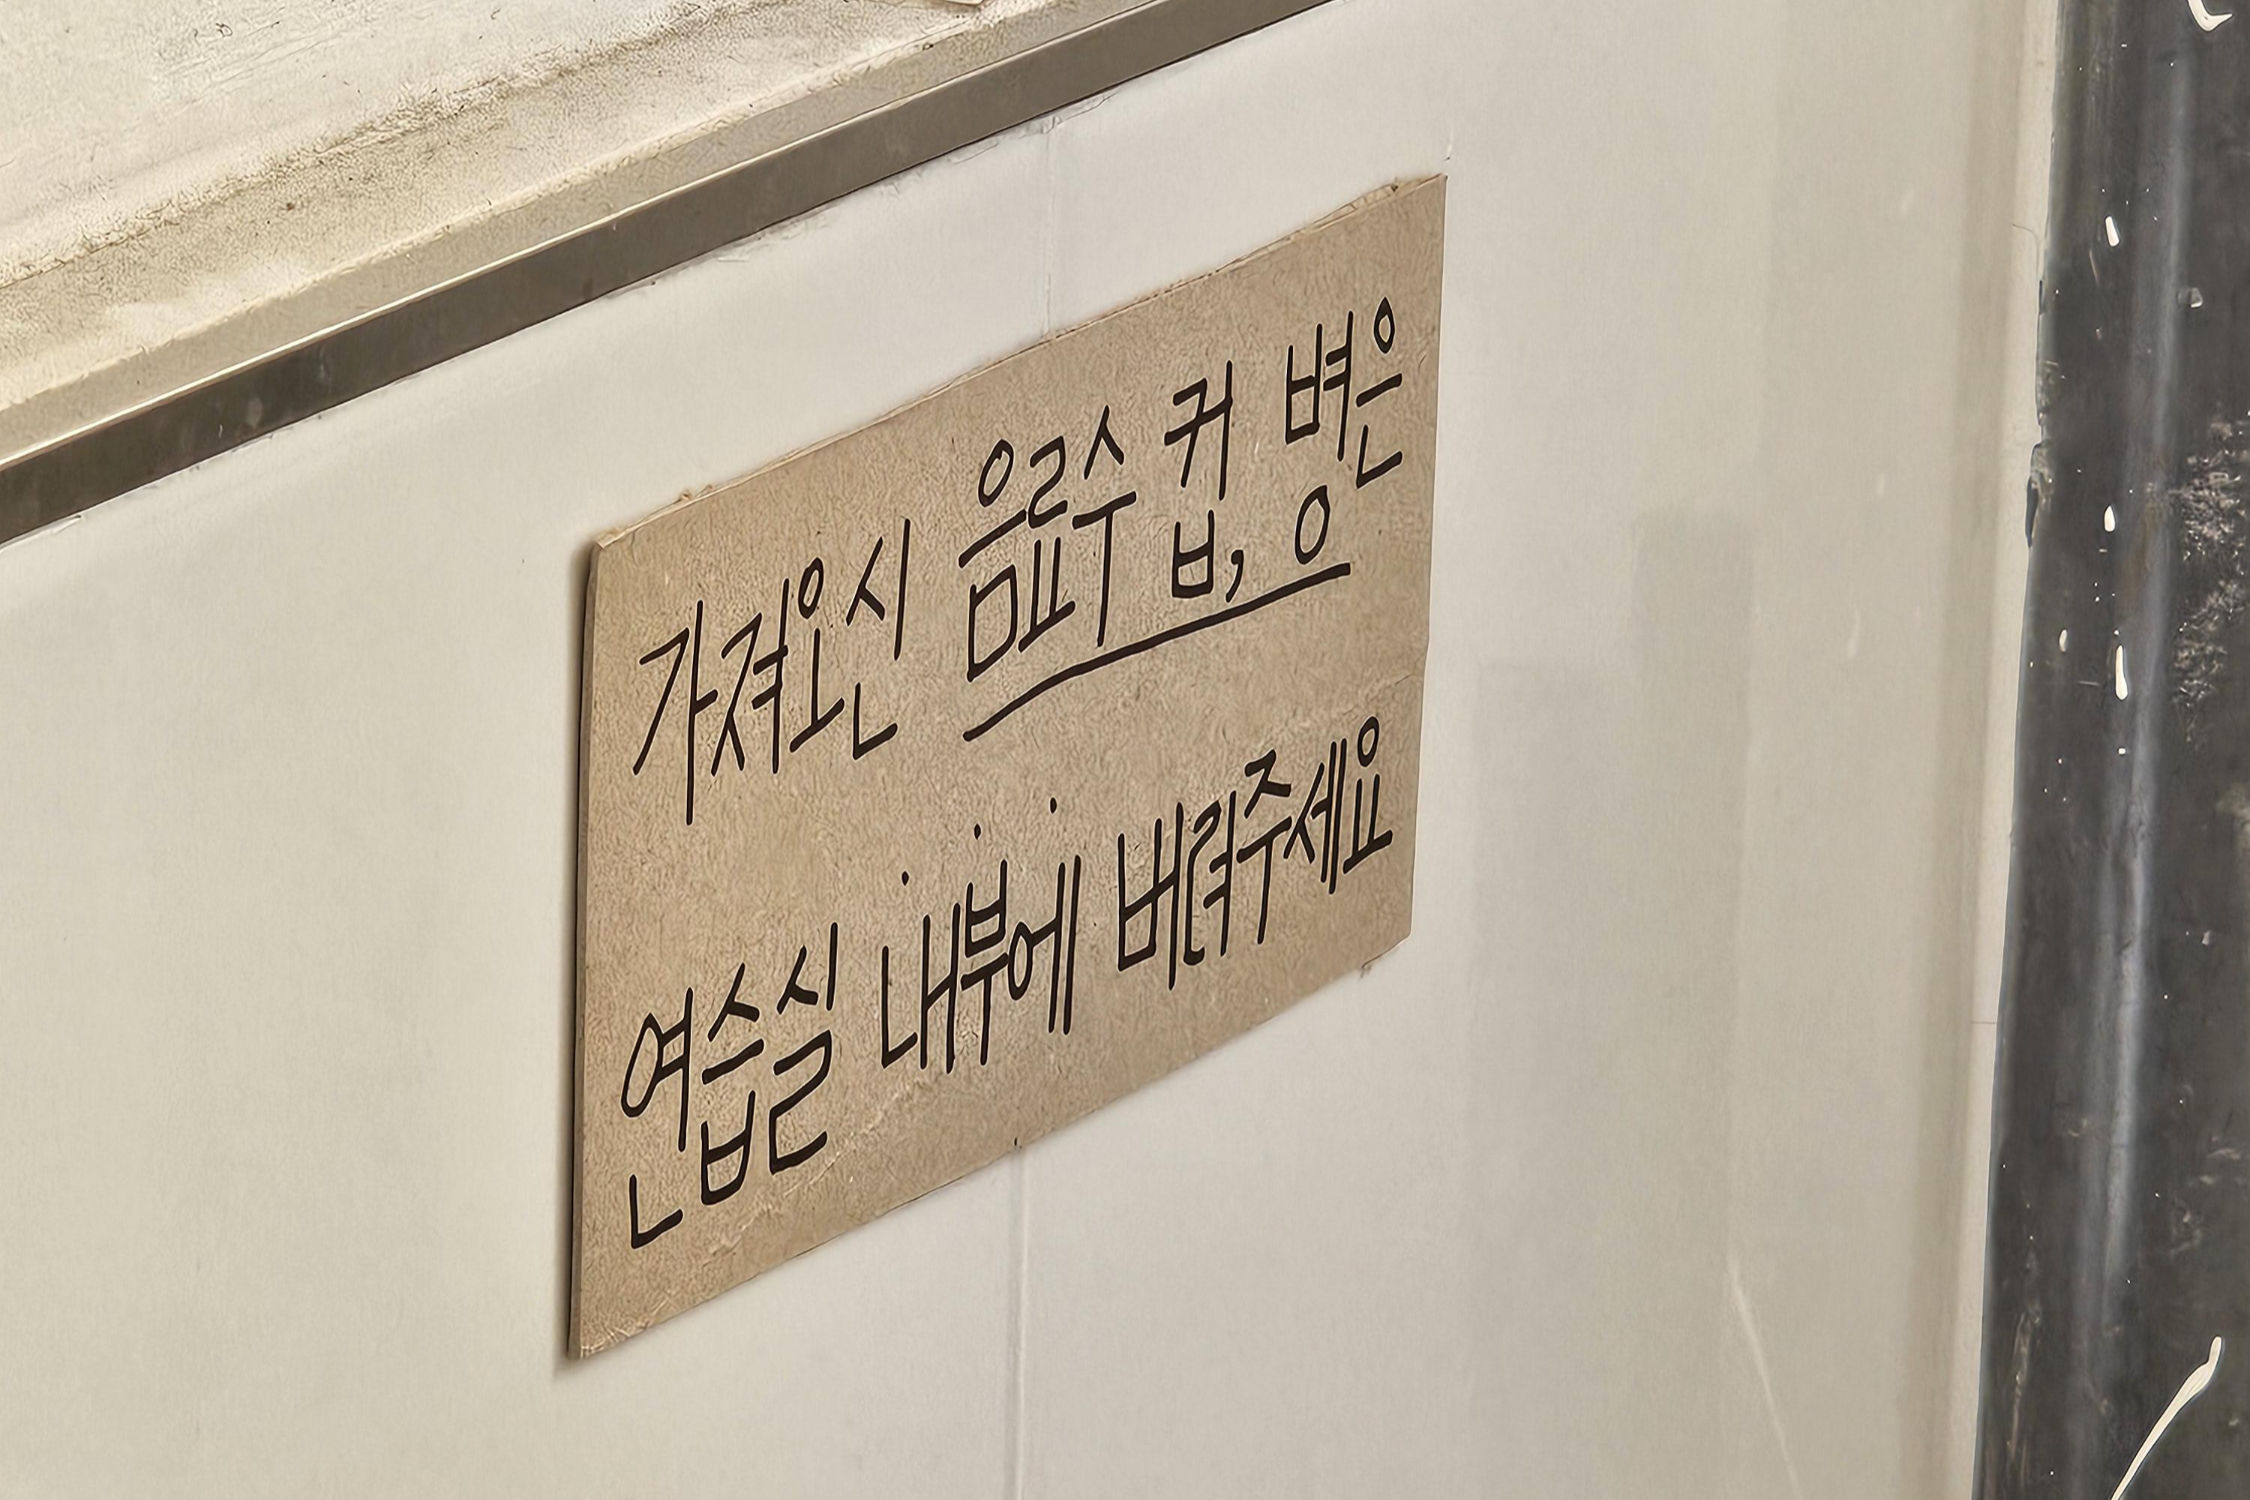 가져오신 음료수 컵, 병은
연습실 내부에 버려주세요